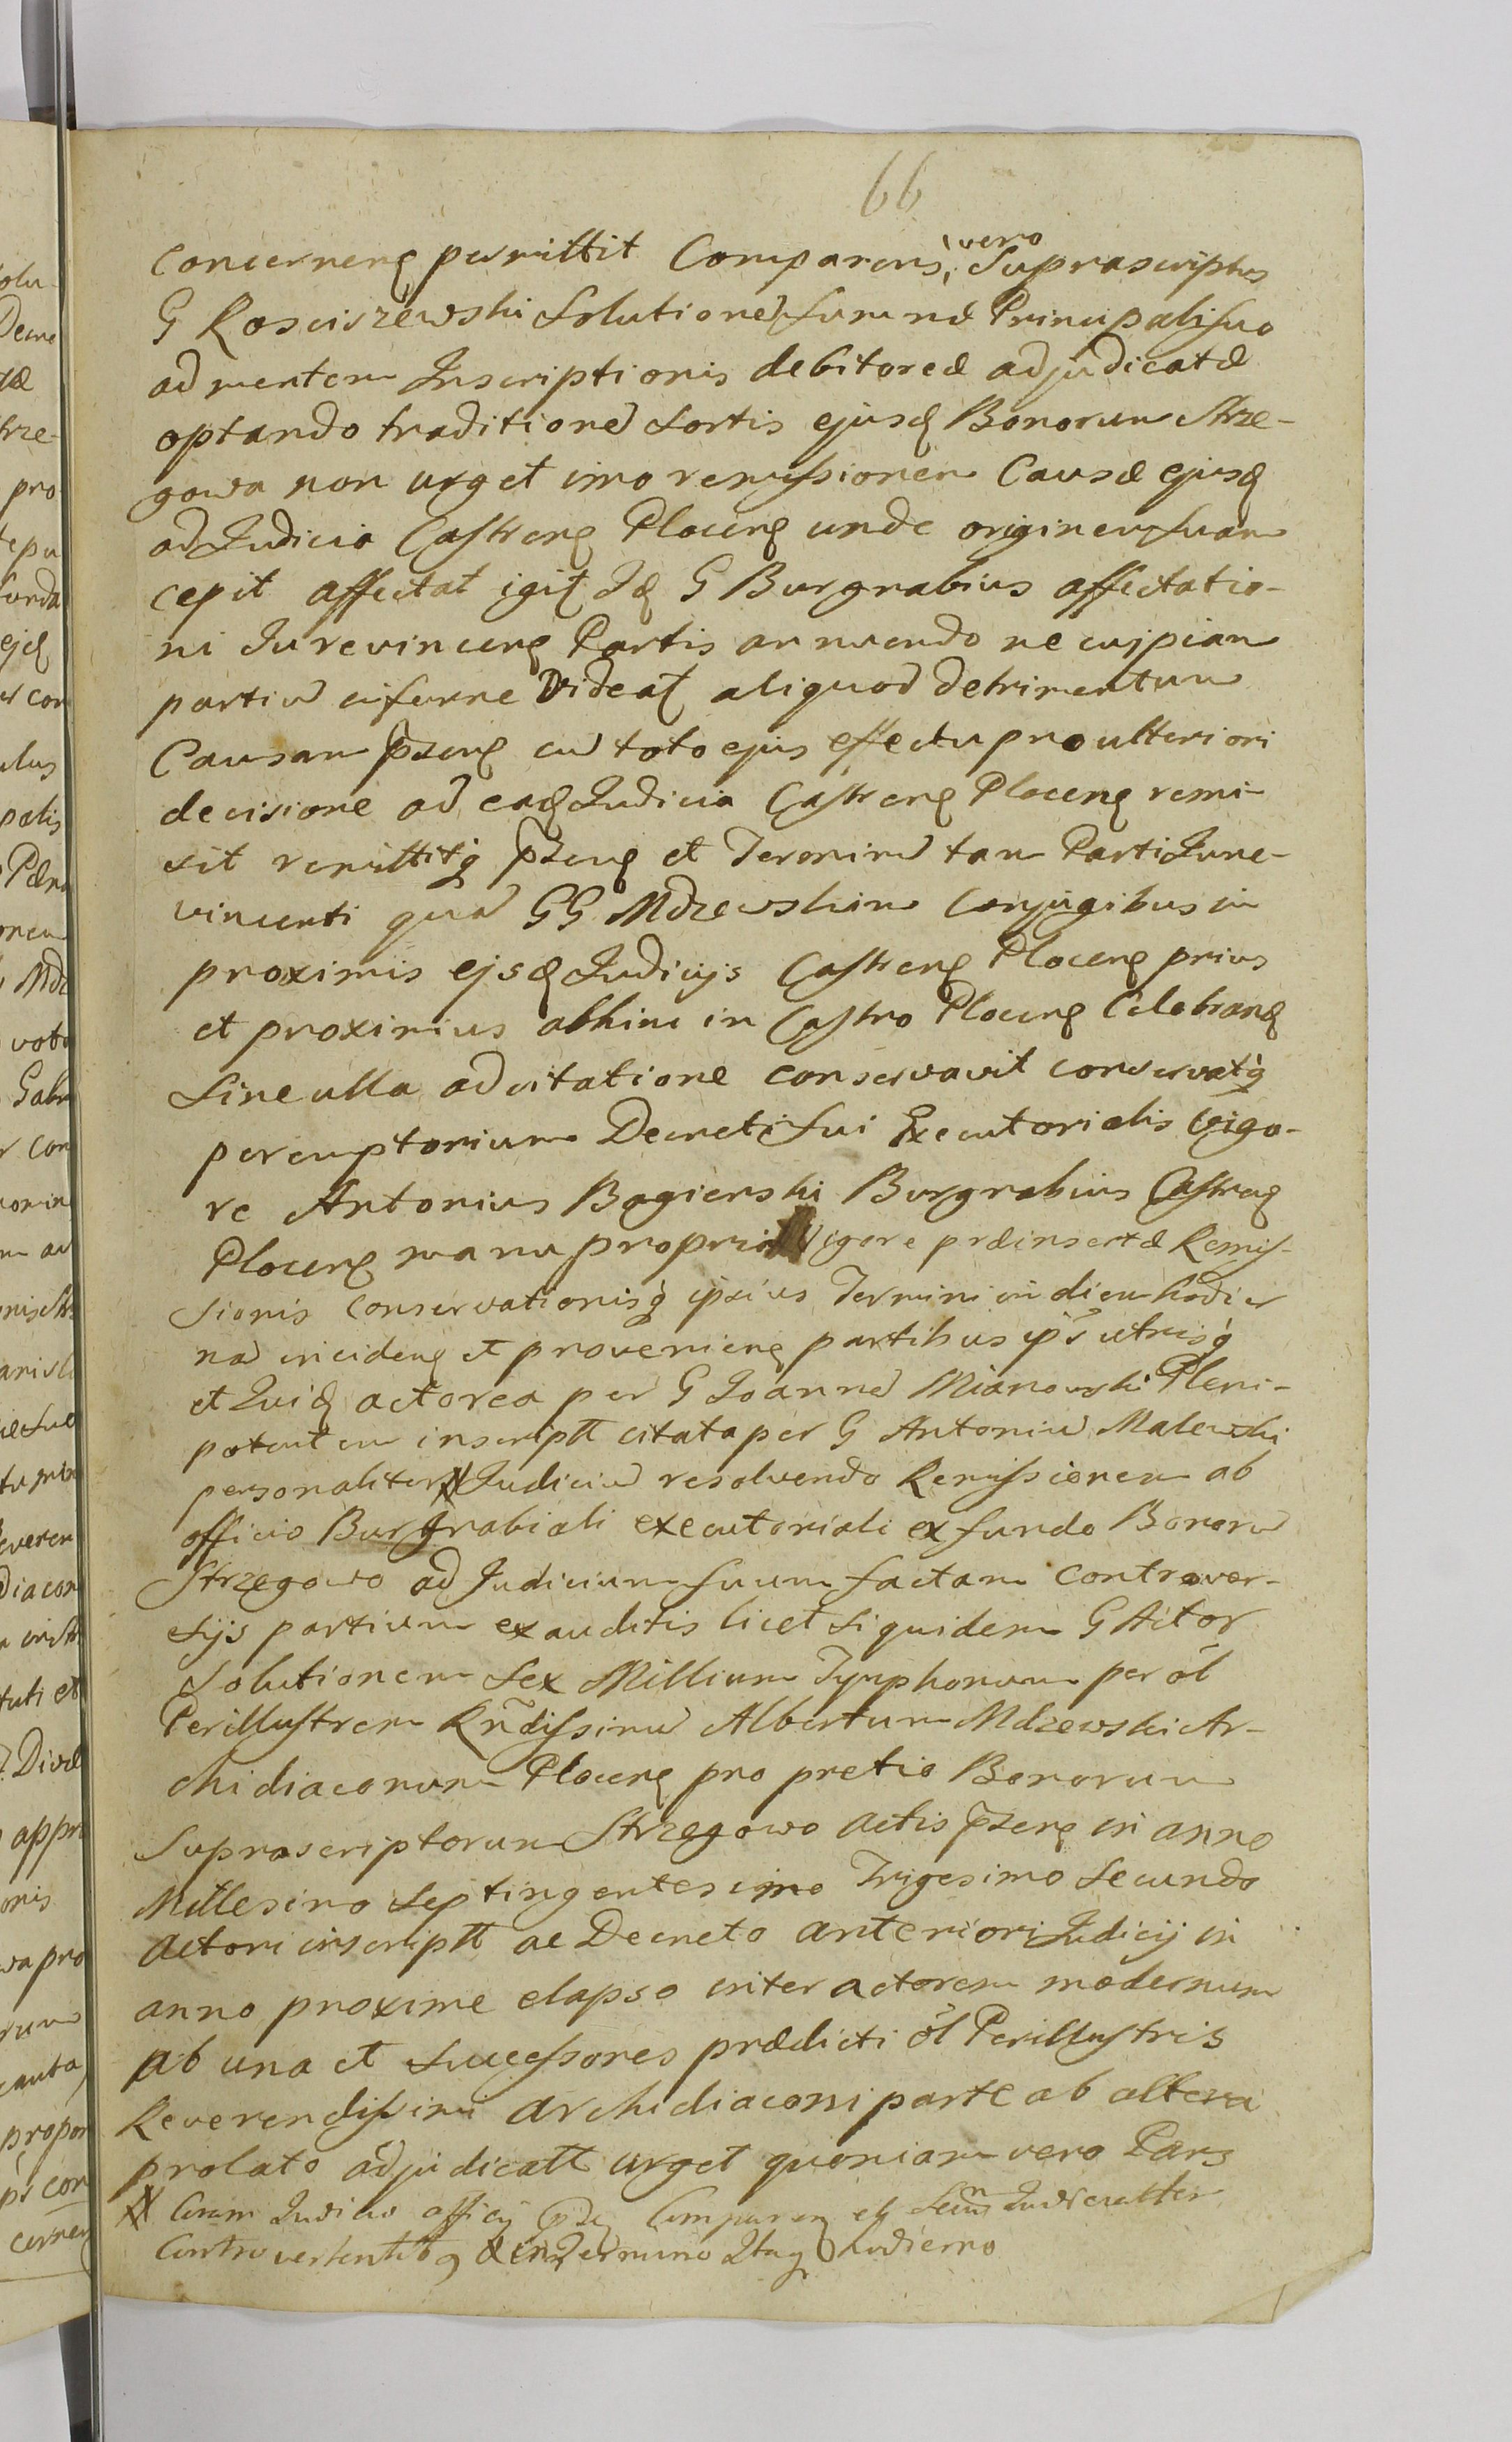 66
concernenȩ permittit Comparens, vero Suprascriptus
G Rosciszewski Solutione Summæ Principali suo
ad mentem Inscriptionis debitoreæ adjudicatæ
optando traditione Sortis ejusȩ Bonorum Strze-
gowa non urget imo remissionem Causæ ejusȩ
ad Judicia Castrenȩ Plocenȩ unde originem suam
cepit affectat igit Idȩ G Burgrabius affectatio-
ni Jurevincenȩ Partis annuendo ne cuipiam
partiu inferre Videat aliquod detrimentum
Causam p̃zenȩ cu toto ejus effectu pro ulteriori
decisione ad eadȩ Judicia Castrenȩ Plocenȩ remi-
sit remittitq̀ p̃zenȩ et Terminu tam Parti Jure-
vincenti qua GG Mdzewskim Conjugibus in
proximis ejsdȩ Judicijs Castrenȩ Plocenȩ prius
et proximius abhinc in Castro Plocenȩ Celebranȩ
Sine ulla adcitatione conservavit conservatq̀
peremptorium Decreti sui Executorialis Vigo-
re Antonius Bagienski Burgrabius Castrenȩ
Plocenȩ manu propria Vigore præinsertæ Remis-
sionis conservationisq̀ ipsius Termini in diem hodier
na incidenȩ et provenienȩ partibus ip̃s utrisq̀
et Quidȩ actorea per G Joanne Mianowski Pleni-
potentem inscriptt citata per G Antoniu Malewski
personaliter # Judiciu resolvendo Remissionem ab
officio Burgrabiali executoriali ex fundo Bonoru
Strzegowo ad Judicium suum factam controver-
sijs partium exauditis licet siquidem G Actor
Solutionem Sex Millium Tymphonum per ol
Perillustrem Rn̄dissimu Albertum Mdzewski Ar-
chidiaconum Plocenȩ pro pretio Bonorum
Suprascriptorum Strzegowo actis p̃zenȩ in anno
Millesimo Septingentesimo Trigesimo Secundo
Actori inscriptt ac Decreto anteriori Judicij in
anno proxime elapso inter actorem modernum
ab una et Successores prædicti ol Perillustris
Reverendissimi Archidiaconi parte ab altera
prolato adjudicatt urget quoniam vero Pars
# Coram Judicio officij p̃zȩ Comparenȩ et Secum Judicialiter
Controvertentibȩ in Termino Itaȩ hodierno